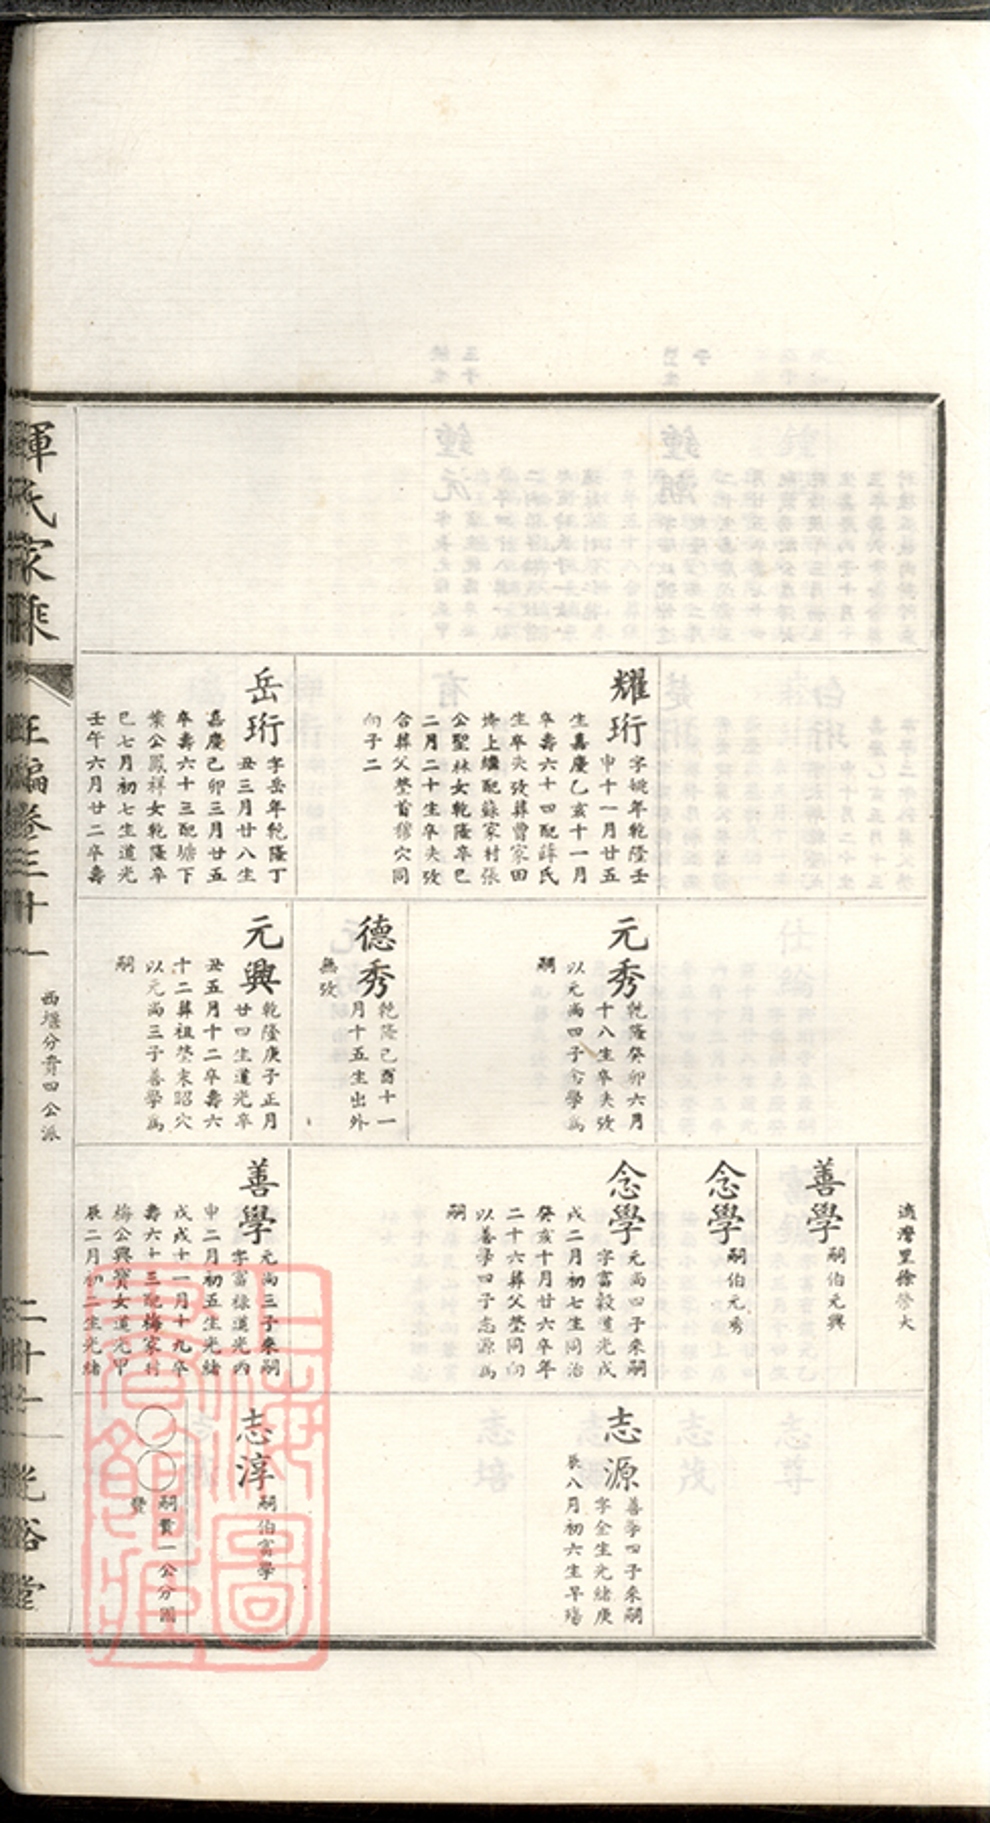 耀珩
字娬年乾隆壬
申十一月廿五
生嘉慶乙亥十一月
卒壽六十四配薛氏
生卒失攷葬曹家田
埓上繼配蘇家村張
公聖林女乾隆辛巳
二月二十生卒失攷
合葬父塋首穆穴同
向子二
岳珩
字岳年乾隆丁
丑三月廿八生
嘉慶己卯三月廿五
卒壽六十三配塘下
葉公鳳祥女乾隆辛
巳七月初七生道光
壬午六月廿二卒壽
元秀
乾隆癸卯六月
十八生卒失攷
以元尚四子念學為
嗣
德秀
乾隆己酉十一
月十五生出外
無攷
元興
乾隆庚子正月
廿四生道光辛
丑五月十二卒壽六
十二葬祖塋末昭穴
以元尚三子善學為
嗣
灣里徐 大
善學
嗣伯元興
念學
嗣伯元秀
念學
元尚四子來嗣
字富穀道光戊
戌二月初七生同治
癸亥十月廿六卒年
二十六葬父塋同向
以善學四子志源為
嗣
善學
元尚三子來嗣
字富祿道光丙
申二月初五生光緒
戊戌十一月十九卒
壽六十三配梅家村
梅公興寶女道光甲
辰二月初二生光緒
志源
善學四子來嗣
字全生光緒庚
辰八月初六生早殤
志淳
嗣伯富學
○○
嗣貴一公分圖
惲氏家乘
正編卷三十一
西堰分賁四公派
二十一
光裕堂
上海圖書館藏